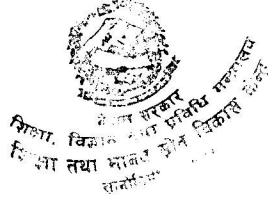 नेपाल सरकार
शिक्षा, विज्ञान तथा प्रविधि मन्त्रालय
शिक्षा तथा मानव स्रोत विकास केन्द्र